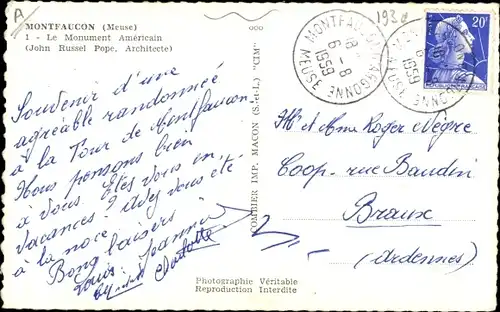 A
MONTFAUCON (Meuse)
1 - Le Monument Américain
(John Russel Pope, Architecte)
Souvenir d'une
agréable randonnée
à la Tour de Montfaucon.
Nous pensons bien
à vous. Êtes vous en
vacances? Avez vous été
à la noce?
Bons baisers
Louis Jeanne
Charlotte
COMBIER IMP. MACON (S.-et-L.) "CIM"
MONTFAUCON D'ARGONNE
MEUSE
18 H
6 - 8
1959
20F
Mr et Mme Roger Nègre
Coop. rue Baudin
Braux
(Ardennes)
Photographie Véritable
Reproduction Interdite